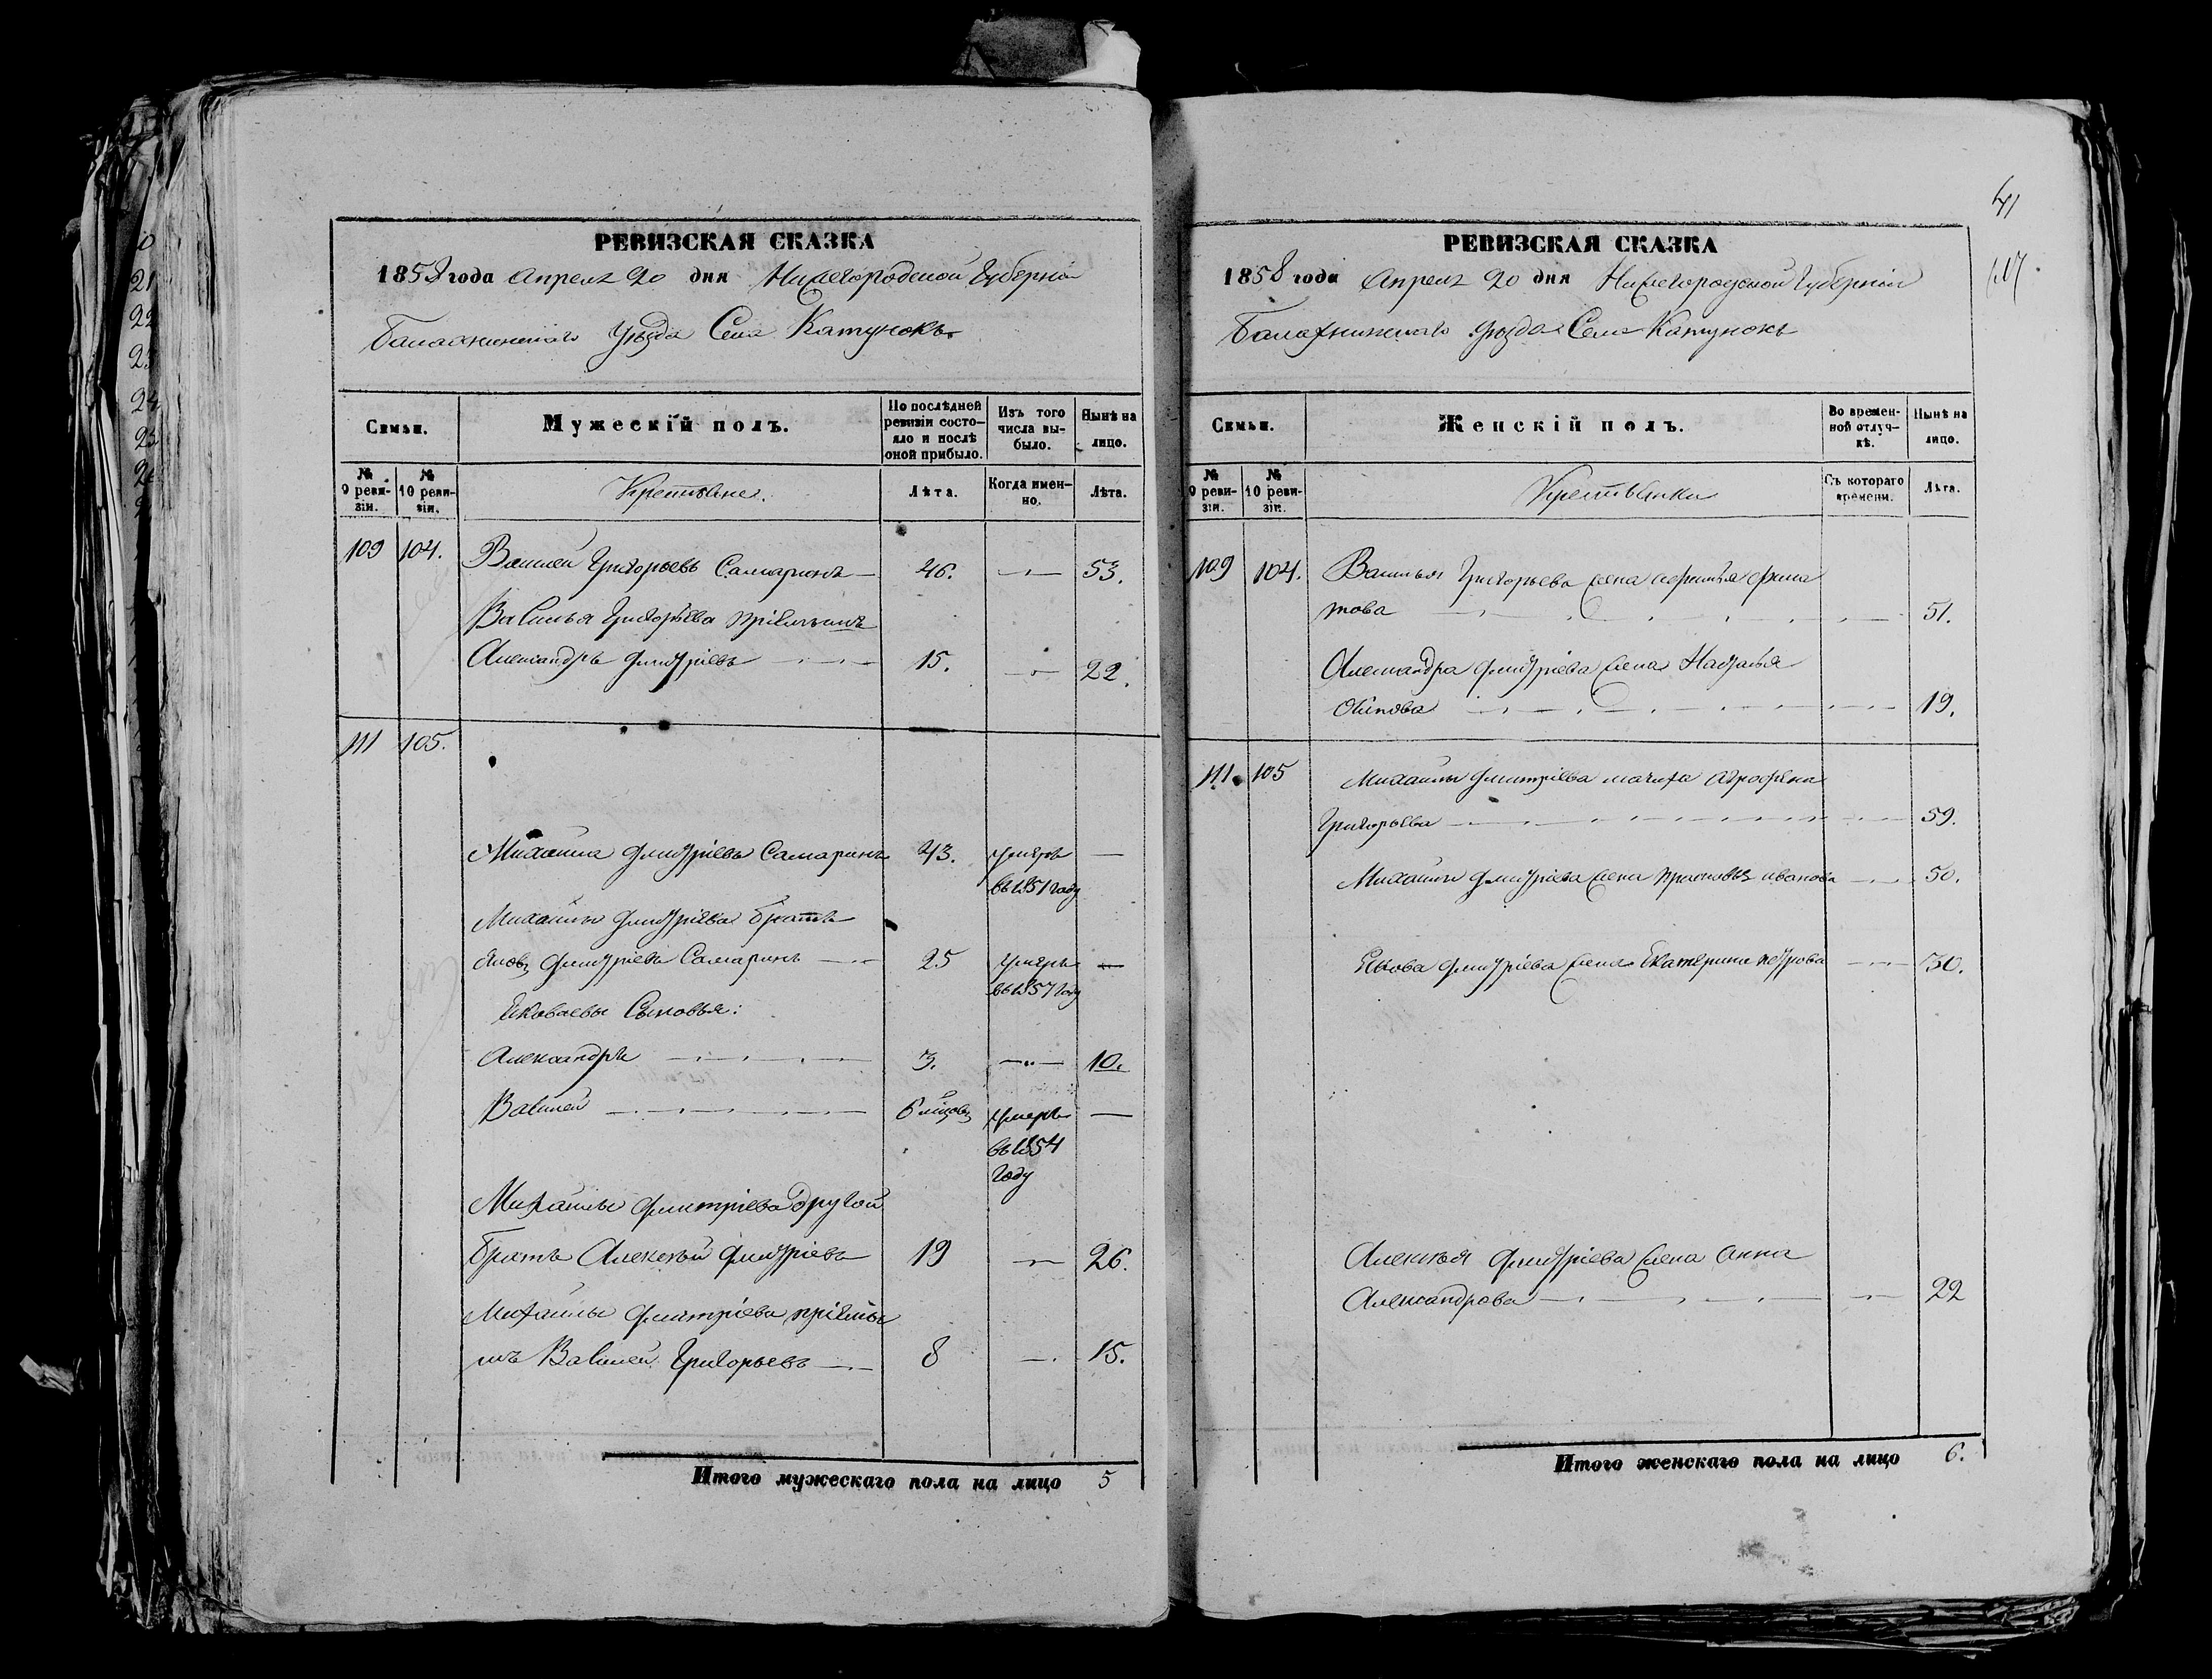 РЕВИЗСКАЯ СКАЗКА
1858 года Апреля 20 дня Нижегородской Губерніи
Балахнинскаго Уѣзда Села Катунокъ
Семьи.
Мужескій полъ.
По послѣдней ревизіи состояло и послѣ оной прибыло.
Изъ того числа выбыло.
Нынѣ на лицо.
№ 9 ревизіи.
№ 10 ревизіи.
Крестьяне.
Лѣта.
Когда именно.
Лѣта.
109 104. Василей Григорьевъ Самаринъ 46. 53.
Василья Григорьева пріемышъ
Александръ Дмитріевъ 15. 22.
111 105.
Михаила Дмитріевъ Самаринъ 43. умеръ
въ 1851 году
Михайлы Дмитріева братъ
Яковъ Дмитріевъ Самаринъ 25 умеръ
въ 1857 году
Яковлевы Сыновья:
Александръ 3. 10.
Василей 6 мѣсяцовъ умеръ
въ 1854
году
Михайлы Дмитріева другой
братъ Алексѣй Дмитріевъ 19 26.
Михайлы Дмитріева пріемы
шъ Василей Григорьевъ 8 15.
Итого мужескаго пола на лицо 5
41
РЕВИЗСКАЯ СКАЗКА
1858 года Апреля 20 дня Нижегородской Губерніи
Балахнинскаго Уѣзда Села Катунокъ
Семьи.
Женскій полъ.
Во временной отлучкѣ.
Нынѣ на лицо.
№ 9 ревизіи.
№ 10 ревизіи.
Крестьянки
Съ котораго времени.
Лѣта.
109 104. Василья Григорьева жена
това 51.
Александра Дмитріева жена Надежда
Осипова 19.
111. 105 Михайлы Дмитріева мачиха Аграфена
Григорьева 59.
Михайлы Дмитріева жена Прасковья Иванова 50.
Якова Дмитріева жена Екатерина Петрова 30.
Алексѣя Дмитріева жена Анна
Александрова 22
Итого женскаго пола на лицо 6.